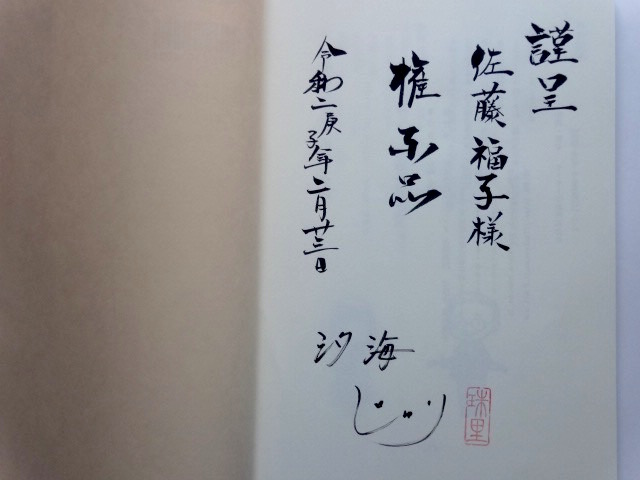 謹呈
佐藤福子様
権不品
令和二庚子年二月廿三日
汐海
珠里